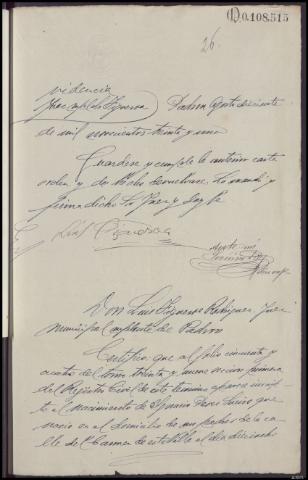 D.0.108.515
26.
Providencia
Juez suplente Figueroa Padron Agosto diecisiete
de mil novecientos treinta y uno
Guardese y cumplase la anterior carta
orden y devuelvase. Lo mandó y
firma dicho Sr Juez y doy fe
Luis Figueroa
Ante mi
Don Luis Figueroa Rodriguez Juez
municipal suplente de Padron
Certifico: que al folio cincuenta y
cuatro del tomo treinta y nueve seccion primera
del Registro Civil de este termino aparece inscri-
to el nacimiento de Ignacio que
nacio en el domicilio de sus padres de la ca-
lle del Carmen de esta Villa el dia